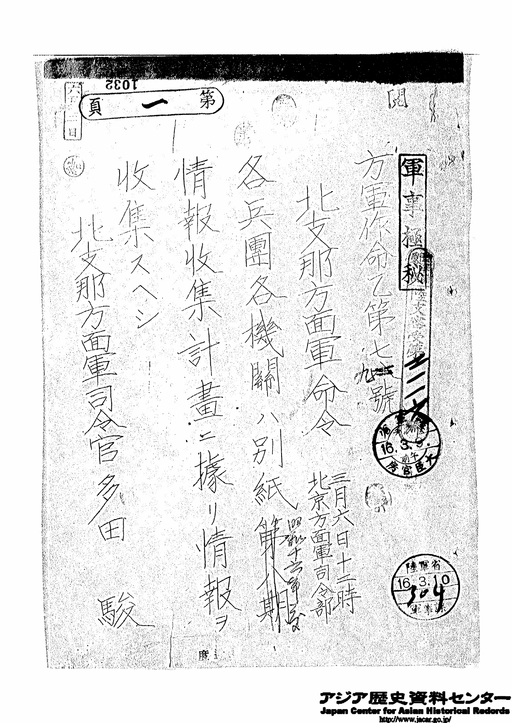 軍事極秘
方軍作命乙第七九號
北支那方面軍命令
三月六日十二時
北京方面軍司令部
各兵團各機關ハ別紙第八期
昭和十六年度
情報收集計畫ニ據リ情報ヲ
收集スヘシ
北支那方面軍司令官多田 駿
第一頁
1032
16.3.8.
陸軍省
16.3.10
アジア歴史資料センター
Japan Center for Asian Historical Records
http://www.jacar.go.jp/